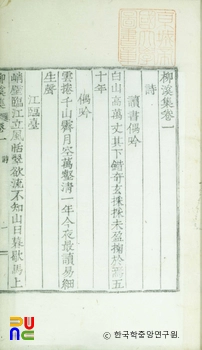 柳溪集卷一
詩
讀書偶吟
白山高萬丈其下錯奇玄採採未盈掬於焉五
十年
偶吟
雲捲千山霽月空萬壑清一年今夜最讀易細
生聲
江臨臺
峭壁臨江立風恬
不知山日暮歌馬上
柳溪集
卷一
詩
一
PUNC
ⓒ 한국학중앙연구원.